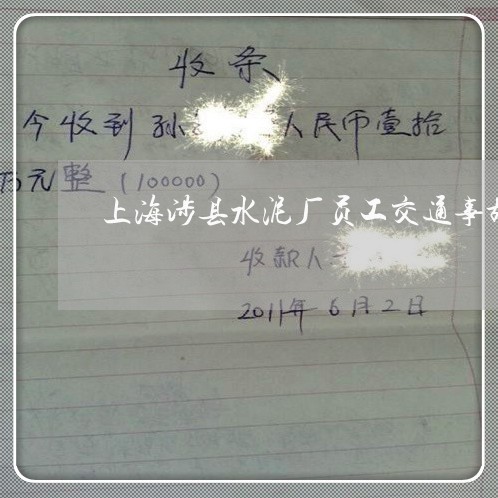 收条
今收到孙 人民币壹拾
万元整(100000)
上海涉县水泥厂员工交通事故
收款人
2011年6月2日